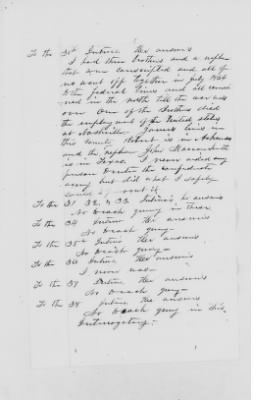 To the 30th Interro Her answers
I had three brothers and a nephew
that were conscripted and all of
us went off together in July 1864
to the federal lines and all remained
in the north till the war was
over One of the brothers died
in the employment of the United States
at Nashville. James lives in
this County Robert is in Arkansas
and the nephew John
is in Texas. I never aided any
person to enter the confederate
army but did what I safely
could to out it
To the 31 32 & 33 Interro's he answers
No breach going in these
To the 34 Interro Her answers
No breach going
To the 35th Interro Her answers
No breach going
To the 36 Interro Her answers
I never was
To the 37 Interro Her answers
No breach going
To the 38 Interro Her answers
No breach going in this
Interrogatory.